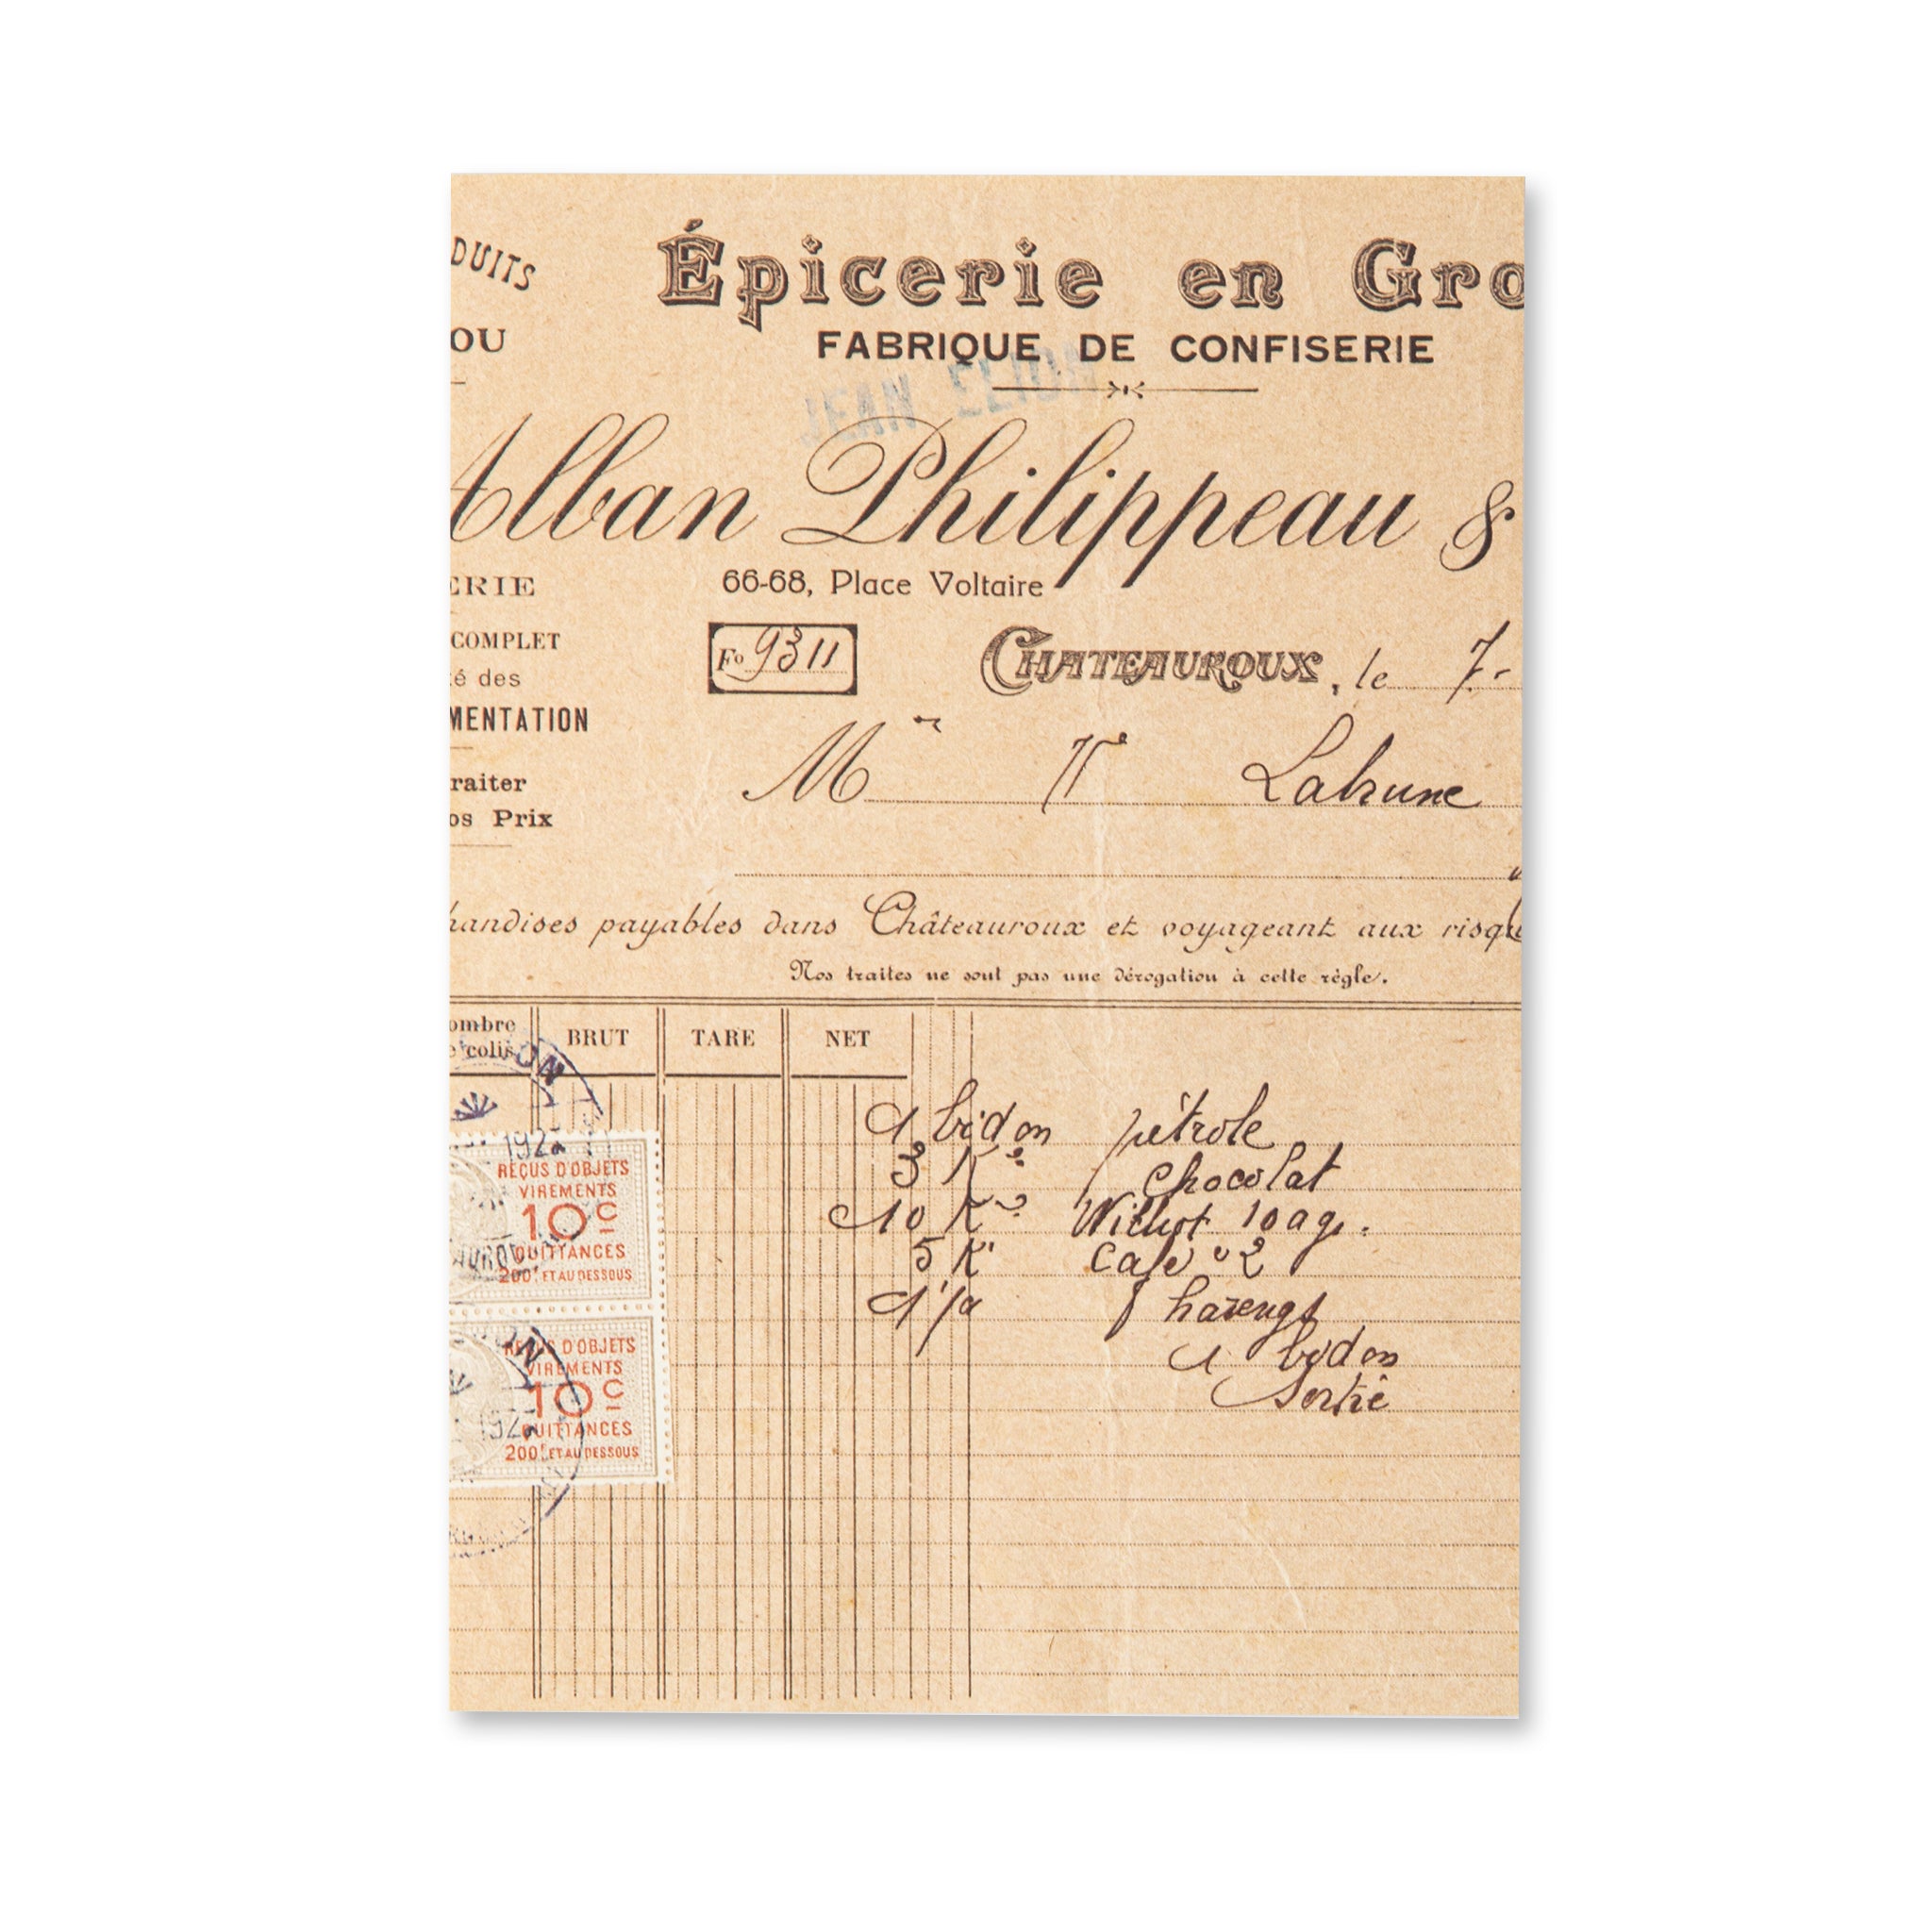 DUITS
Épicerie en Gro
OU
FABRIQUE DE CONFISERIE
JEAN ELION
Alban Philippeau &
66-68, Place Voltaire
ERIE
COMPLET
Fo 9311
CHATEAUROUX, le 7-
té des
MENTATION
M
Labrune
raiter
os Prix
handises payables dans Châteauroux et voyageant aux risqu
Nos traites ne sont pas une dérogation à cette règle.
ombre
e colis
BRUT
TARE
NET
1 bidon pétrole
3 K chocolat
10 K 10 a g.
5 K Café 2
harengs
1 bidon
Sortie
192
REÇUS D'OBJETS
VIREMENTS
10c
QUITTANCES
200f ET AU DESSOUS
REÇUS D'OBJETS
VIREMENTS
10c
192
QUITTANCES
200f ET AU DESSOUS